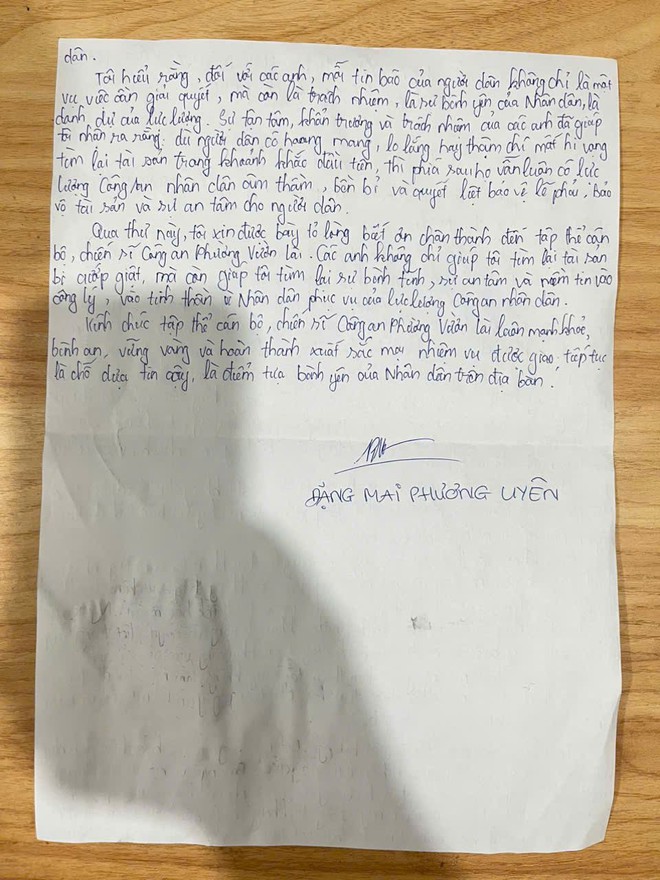 dân.
Tôi hiểu rằng, đối với các anh, mỗi tin báo của người dân không chỉ là một
vụ việc cần giải quyết, mà còn là trách nhiệm, là sự bình yên của Nhân dân, là
danh dự của lực lượng. Sự tận tâm, khẩn trương và trách nhiệm của các anh đã giúp
tôi nhận ra rằng: dù người dân có hoang mang, lo lắng hay thậm chí mất hi vọng
tìm lại tài sản trong khoảnh khắc đầu tiên, thì phía sau họ vẫn luôn có lực
lượng Công an nhân dân âm thầm, bền bỉ và quyết liệt bảo vệ lẽ phải, bảo
vệ tài sản và sự an tâm cho người dân.
Qua thư này, tôi xin được bày tỏ lòng biết ơn chân thành đến tập thể cán
bộ, chiến sĩ Công an Phường Vườn Lài. Các anh không chỉ giúp tôi tìm lại tài sản
bị cướp giật, mà còn giúp tôi tìm lại sự bình tĩnh, sự an tâm và niềm tin vào
công lý, vào tinh thần vì Nhân dân phục vụ của lực lượng Công an nhân dân.
Kính chúc tập thể cán bộ, chiến sĩ Công an Phường Vườn Lài luôn mạnh khoẻ,
bình an, vững vàng và hoàn thành xuất sắc mọi nhiệm vụ được giao, tiếp tục
là chỗ dựa tin cậy, là điểm tựa bình yên của Nhân dân trên địa bàn.
ĐẶNG MAI PHƯƠNG UYÊN